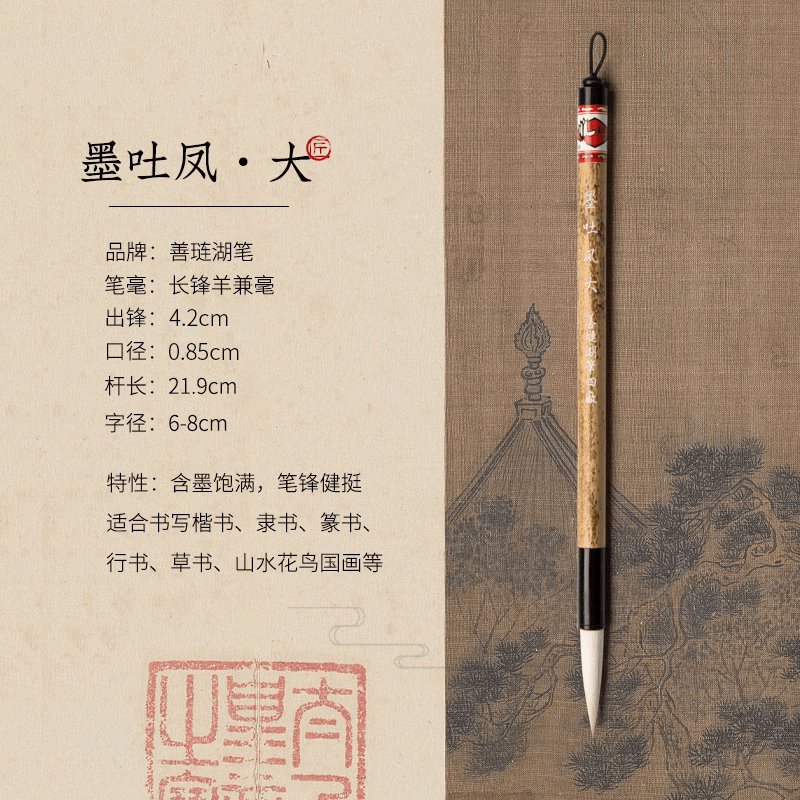 墨吐凤·大
匠
品牌：善琏湖笔
笔毫：长锋羊兼毫
出锋：4.2cm
口径：0.85cm
杆长：21.9cm
字径：6-8cm
特性：含墨饱满，笔锋健挺
适合书写楷书、隶书、篆书、
行书、草书、山水花鸟国画等
墨吐凤 大 善琏湖笔